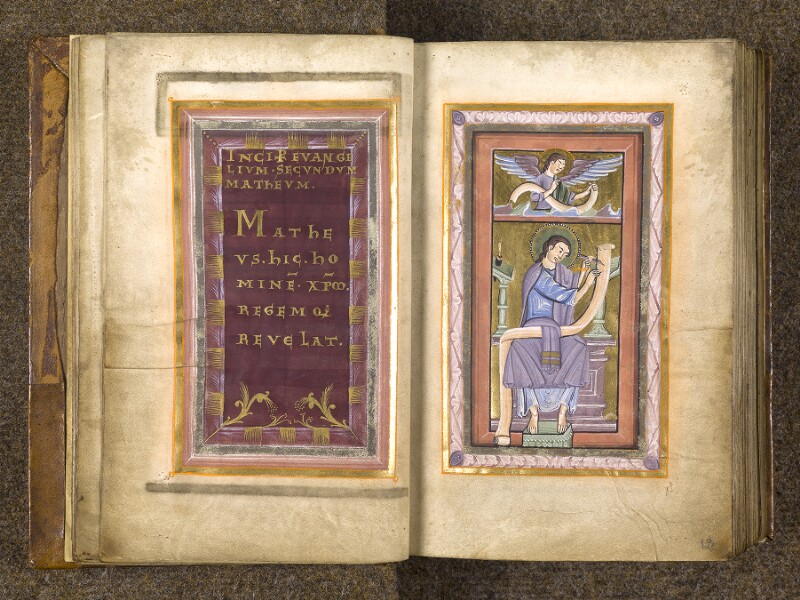 INCIP EVANGE
LIVM · SECVNDVM
MATHEVM.
MATHE
VS. hIC. hO
MINĒ · XP̄M.
REGEMQ;
REVELAT.